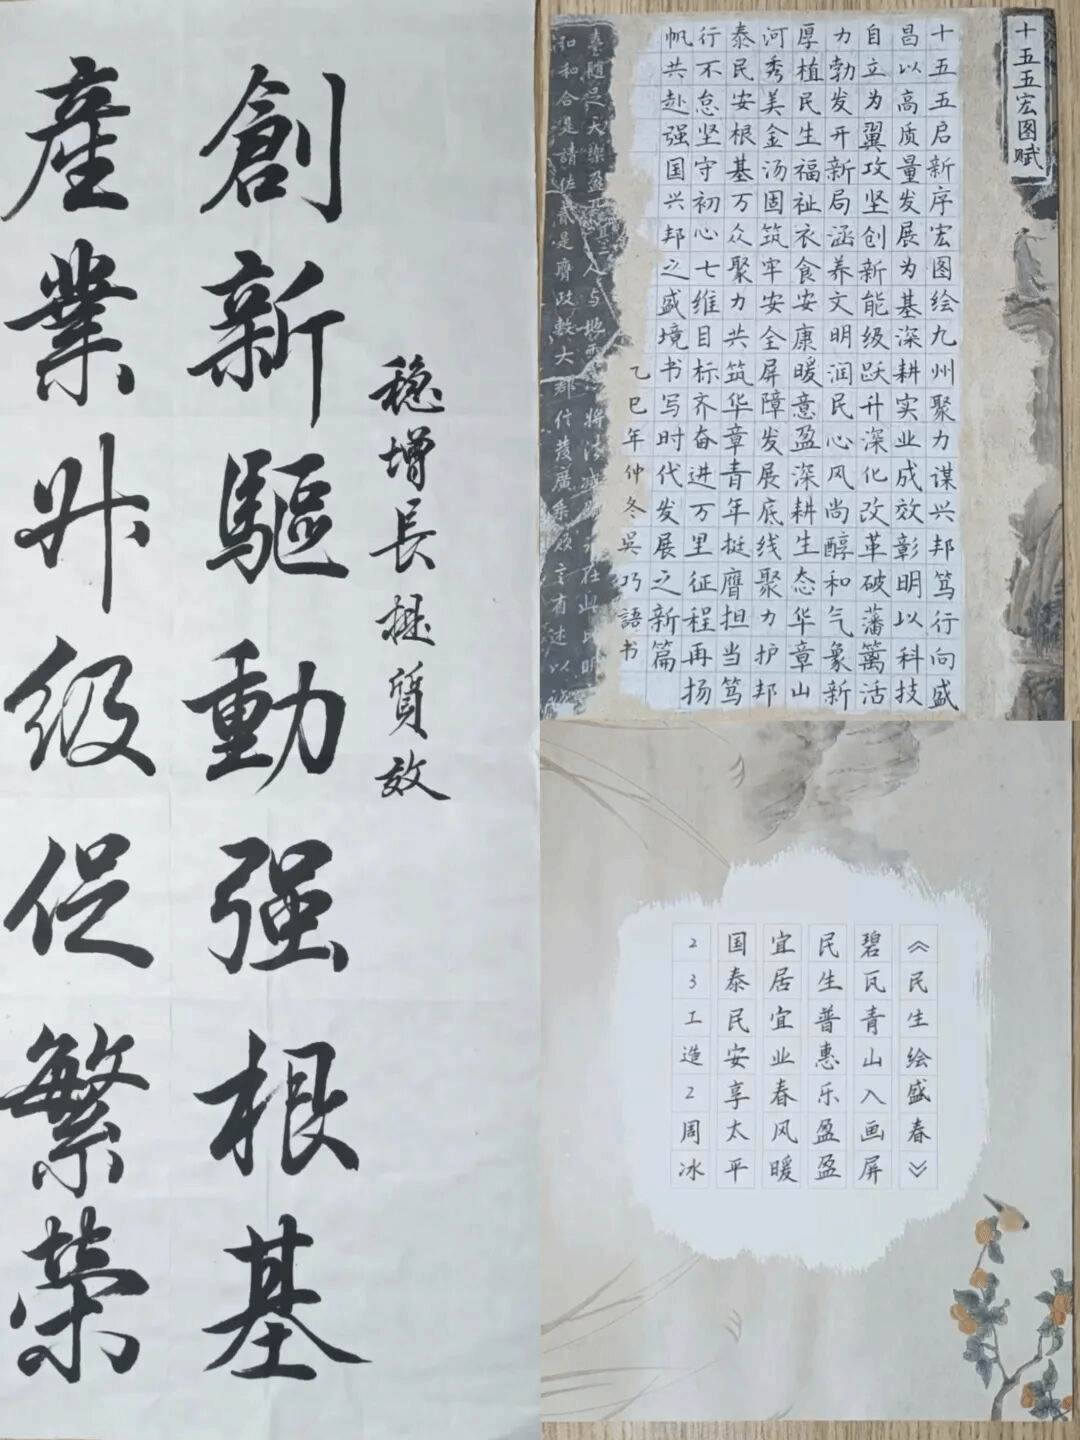 稳增長提質效
創新驅動强根基
産業升级促繁榮
十五五宏图赋
十五五启新序宏图绘九州聚力谋兴邦笃行向盛
昌以高质量发展为基深耕实业成效彰明以科技
自立为翼攻坚创新能级跃升深化改革破藩篱活
力勃发开新局涵养文明润民心风尚醇和气象新
厚植民生福祉衣食安康暖意盈深耕生态华章山
河秀美金汤固筑牢安全屏障发展底线聚力护邦
泰民安根基万众聚力共筑华章青年挺膺担当笃
行不怠坚守初心七维目标齐奋进万里征程再扬
帆共赴强国兴邦之盛境书写时代发展之新篇
乙巳年仲冬吳巧語书
《民生绘盛春》
碧瓦青山入画屏
民生普惠乐盈盈
宜居宜业春风暖
国泰民安享太平
23工造2周冰